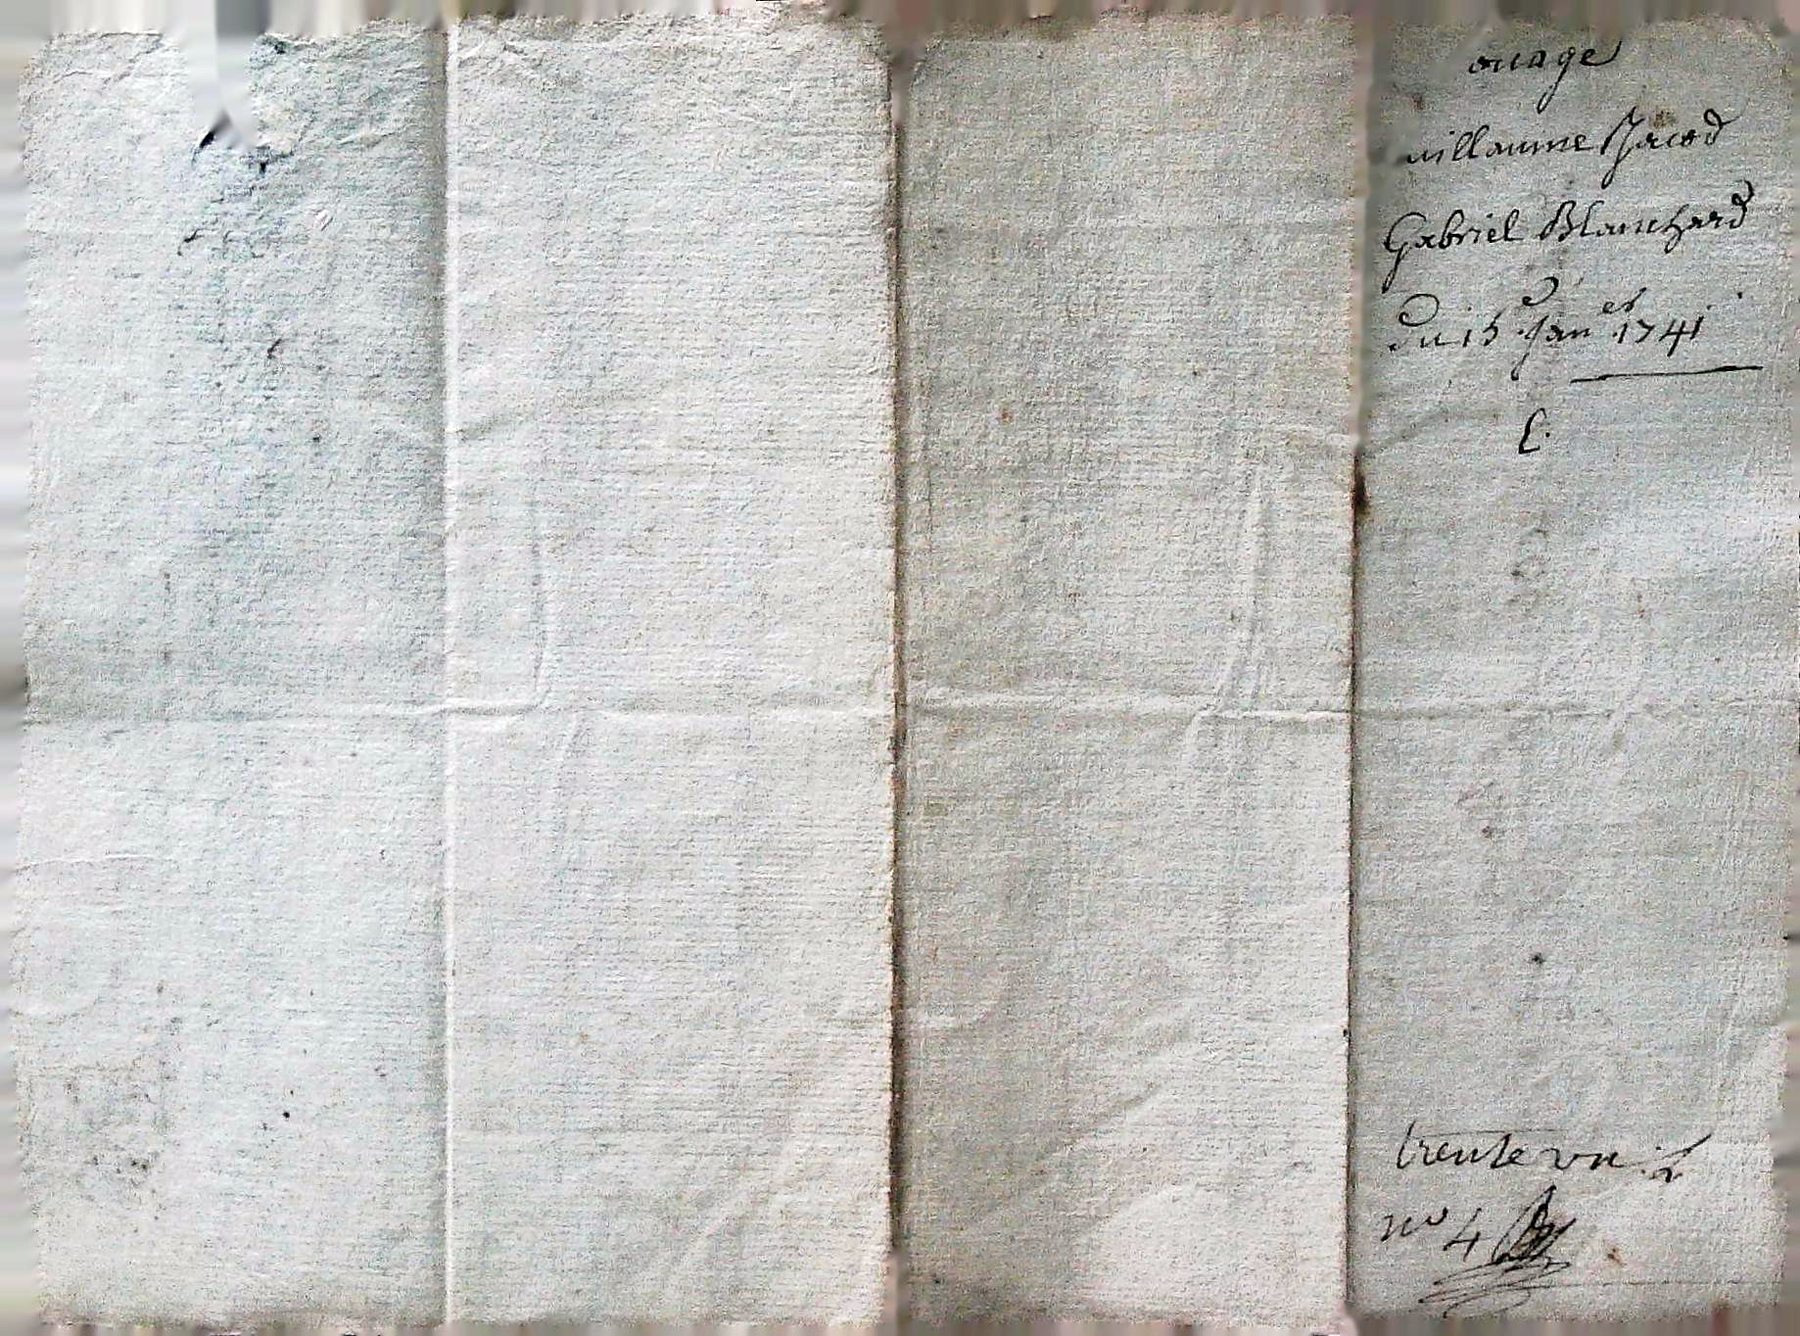 ouage
uillaume Jacod
Gabriel Blanchard
du 15 Jan er 1741
E.
trente un
no 4